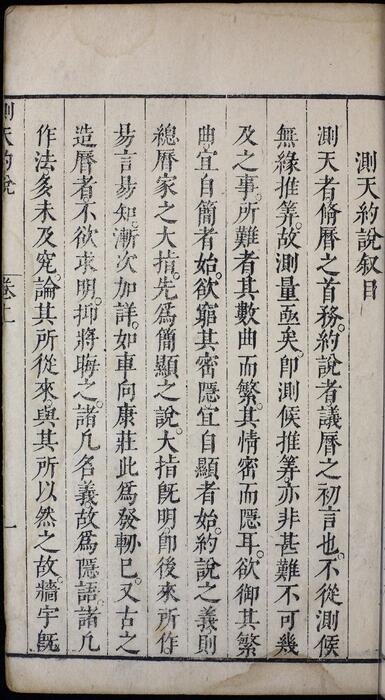 測天約說叙目
測天者脩曆之首務。約說者議曆之初言也。不從測候
無緣推筭。故測量亟矣。即測候推筭。亦非甚難不可幾
及之事。所難者其數曲而繁。其情密而隱耳。欲御其繁
曲宜自簡者始。欲窮其密隱宜自顯者始。約說之義則
總曆家之大指。先爲簡顯之說。大指旣明卽後來所作
易言易知。漸次加詳。如車向康莊此爲發軔已。又古之
造曆者。不欲求明。抑將晦之。諸凡名義故爲隱語。諸凡
作法多未及究。論其所從來。與其所以然之故。牆宇旣
測天約說 卷上 一